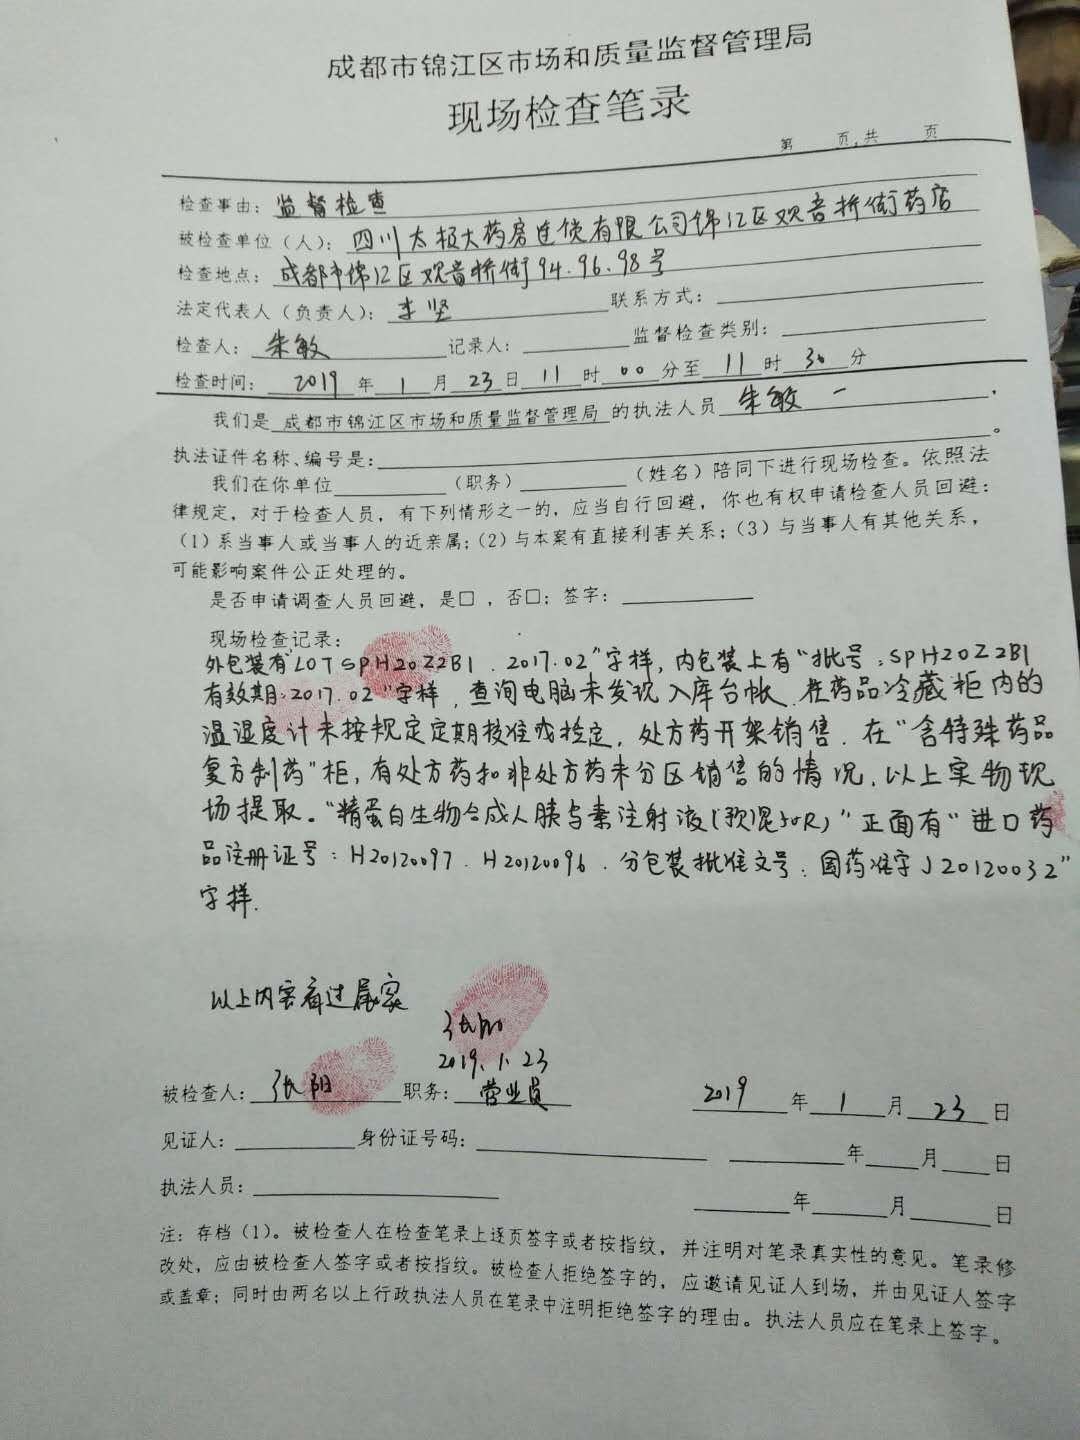 成都市锦江区市场和质量监督管理局
现场检查笔录
第 页,共 页
检查事由: 监督检查
被检查单位(人): 四川太极大药房连锁有限公司锦江区观音桥街药店
检查地点: 成都市锦江区观音桥街94.96.98号
法定代表人(负责人): 李坚 联系方式:
检查人: 朱敏 记录人: 监督检查类别:
检查时间: 2019年1月23日11时00分至11时30分
我们是成都市锦江区市场和质量监督管理局的执法人员 朱敏
执法证件名称、编号是: 。
我们在你单位 (职务) (姓名)陪同下进行现场检查。依照法
律规定,对于检查人员,有下列情形之一的,应当自行回避,你也有权申请检查人员回避:
(1)系当事人或当事人的近亲属;(2)与本案有直接利害关系;(3)与当事人有其他关系,
可能影响案件公正处理的。
是否申请调查人员回避,是□,否□;签字:
现场检查记录:
外包装有"LOT SPH20Z2B1.2017.02"字样,内包装上有"批号:SPH20Z2B1
有效期:2017.02"字样,查询电脑未发现入库台帐.在药品冷藏柜内的
温湿度计未按规定定期校准或检定,处方药开架销售.在"含特殊药品
复方制药"柜,有处方药和非处方药未分区销售的情况,以上实物现
场提取。"精蛋白生物合成人胰岛素注射液(预混50R)"正面有"进口药
品注册证号:H20120097.H20120096.分包装批准文号:国药准字J20120032"
字样.
以上内容看过属实
张阳
2019.1.23
被检查人: 张阳 职务: 营业员 2019年1月23日
见证人: 身份证号码: 年 月 日
执法人员: 年 月 日
注:存档(1)。被检查人在检查笔录上逐页签字或者按指纹,并注明对笔录真实性的意见。笔录修
改处,应由被检查人签字或者按指纹。被检查人拒绝签字的,应邀请见证人到场,并由见证人签字
或盖章;同时由两名以上行政执法人员在笔录中注明拒绝签字的理由。执法人员应在笔录上签字。